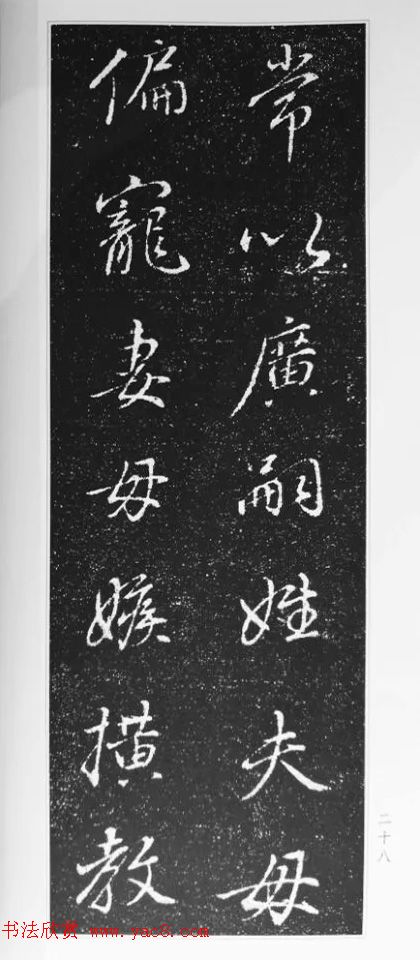 常以廣嗣姓夫毋
偏寵妻毋嫉橫教
二十八
书法欣赏 www.yac8.com